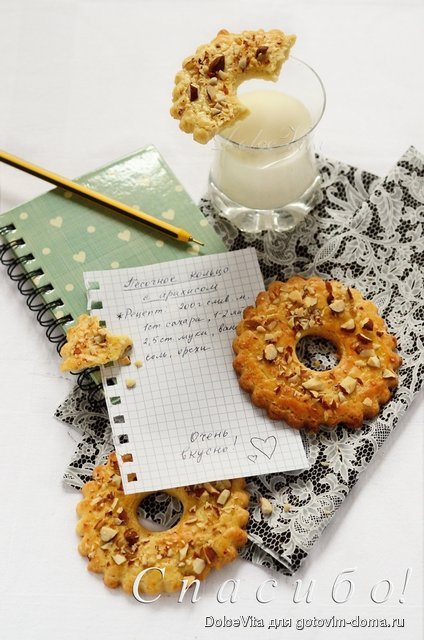 Песочное кольцо
с арахисом
*Рецепт: 200г слив. м.
1ст сахара, 1-2 яй
2,5 ст муки, ван
соль, орехи.
Очень
вкусно!
Спасибо!
DolceVita для gotovim-doma.ru